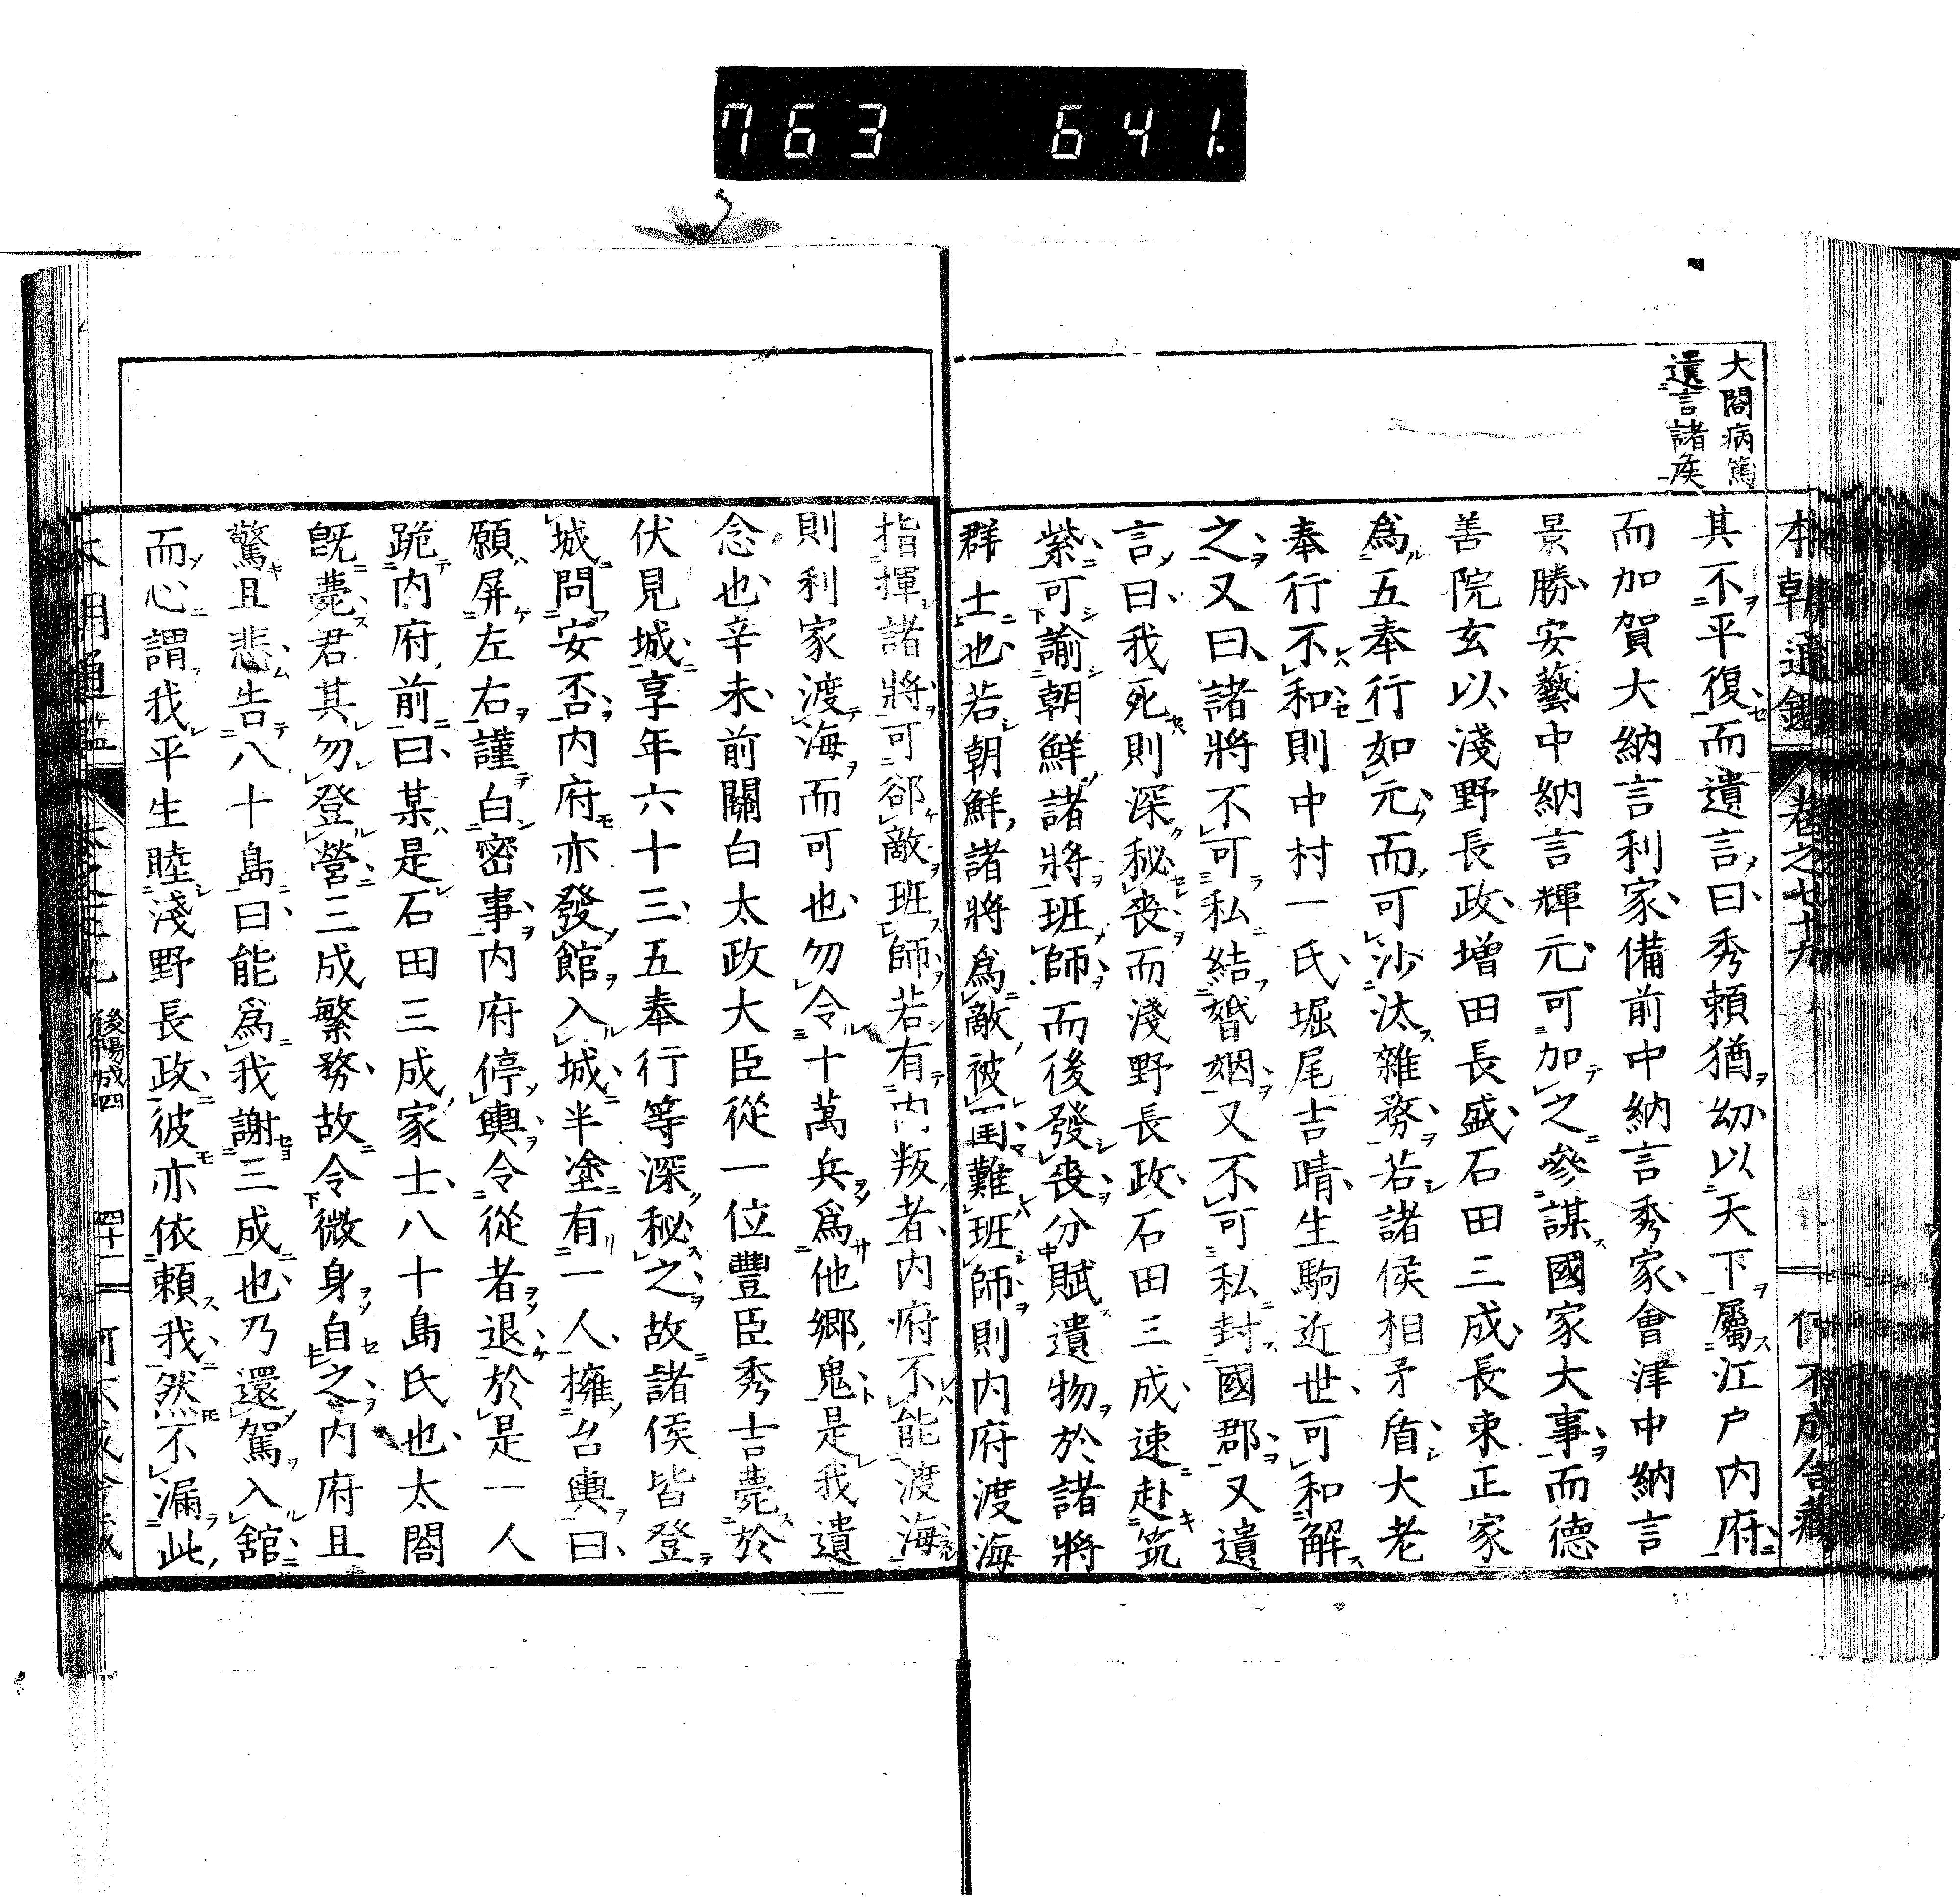 763 641.
大閤病篤
遺言諸矦
本朝通鑑 卷之七十九
其不平復而遺言曰秀頼猶幼以天下屬江戸内府
而加賀大納言利家備前中納言秀家會津中納言
景勝安藝中納言輝元可加之參謀國家大事而德
善院玄以淺野長政增田長盛石田三成長束正家
爲五奉行如元而可沙汰雜務若諸侯相矛盾大老
奉行不和則中村一氏堀尾吉晴生駒近世可和解
之又曰諸將不可私結婚姻又不可私封國郡又遺
言曰我死則深秘喪而淺野長政石田三成速赴筑
紫可諭朝鮮諸將班師而後發喪分賦遺物於諸將
群士也若朝鮮諸將爲敵被囯難班師則内府渡海
指揮諸將可郤敵班師若有内叛者内府不能渡海
則利家渡海而可也勿令十萬兵爲他郷鬼是我遺
念也辛未前關白太政大臣從一位豐臣秀吉薨於
伏見城享年六十三五奉行等深秘之故諸侯皆登
城問安否内府亦發館入城半塗有一人擁呂輿曰
願屏左右謹白密事内府停輿令從者退於是一人
跪内府前曰某是石田三成家士八十島氏也太閤
旣薨君其勿登營三成繁務故令微身自之内府且
驚且悲告八十島曰能爲我謝三成也乃還駕入舘
而心謂我平生睦淺野長政彼亦依頼我然不漏此
本朝通鑑
後陽成四
四十一